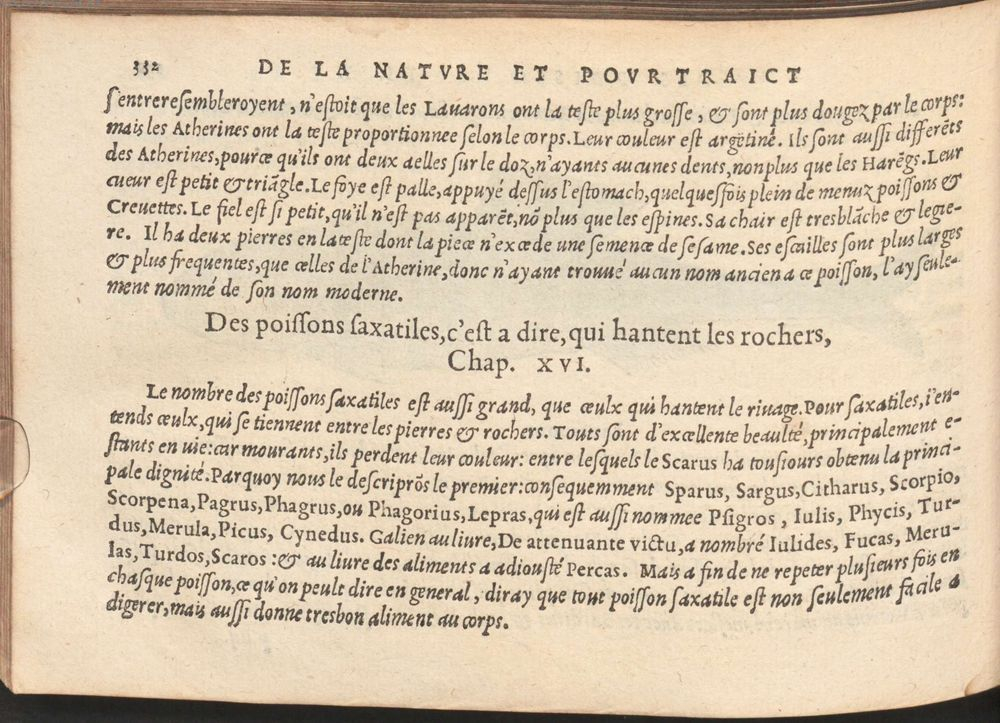 332 DE LA NATVRE ET POVRTRAICT
s'entreresembleroyent, n'estoit que les Lauarons ont la teste plus grosse, & sont plus dougez par le corps:
mais les Atherines ont la teste proportionnee selon le corps. Leur couleur est argẽtine. Ils sont aussi differẽts
des Atherines, pource qu'ils ont deux aelles sur le doz, n'ayants aucunes dents, nonplus que les Harẽgs. Leur
cueur est petit & triãgle. Le foye est palle, appuyé dessus l'estomach, quelquesfois plein de menuz poissons &
Creuettes. Le fiel est si petit, qu'il n'est pas apparẽt, nõ plus que les espines. Sa chair est tresblãche & legie-
re. Il ha deux pierres en la teste dont la piece n'excede une semence de sesame. Ses escailles sont plus larges
& plus frequentes, que celles de l'Atherine, donc n'ayant trouué aucun nom ancien a ce poisson, l'ay seule-
ment nommé de son nom moderne.
Des poissons saxatiles, c'est a dire, qui hantent les rochers,
Chap. XVI.
Le nombre des poissons saxatiles est aussi grand, que ceulx qui hantent le riuage. Pour saxatiles, i'en-
tends ceulx, qui se tiennent entre les pierres & rochers. Touts sont d'excellente beaulté, principalement e-
stants en vie: car mourants, ils perdent leur couleur: entre lesquels le Scarus ha tousiours obtenu la princi-
pale dignité. Parquoy nous le descriprõs le premier: consequemment Sparus, Sargus, Citharus, Scorpio,
Scorpena, Pagrus, Phagrus, ou Phagorius, Lepras, qui est aussi nommee Psigros, Iulis, Phycis, Tur-
dus, Merula, Picus, Cynedus. Galien au liure, De attenuante victu, a nombré Iulides, Fucas, Meru-
las, Turdos, Scaros: & au liure des aliments a adiousté Percas. Mais a fin de ne repeter plusieurs fois en
chasque poisson, ce qu'on peult dire en general, diray que tout poisson saxatile est non seulement facile a
digerer, mais aussi donne tresbon aliment au corps.